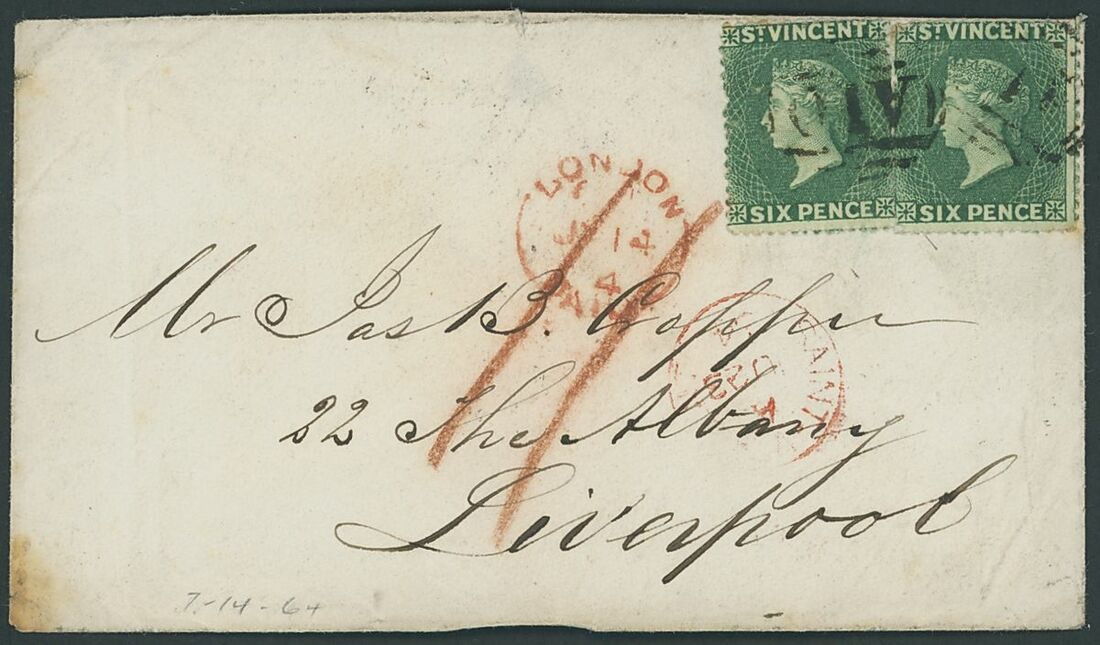 ST VINCENT ST VINCENT
A10
SIX PENCE SIX PENCE
LONDON
14
4
PAID
Mr Jas B. Cropper
22 The Albany
Liverpool
PAID
7-14-64